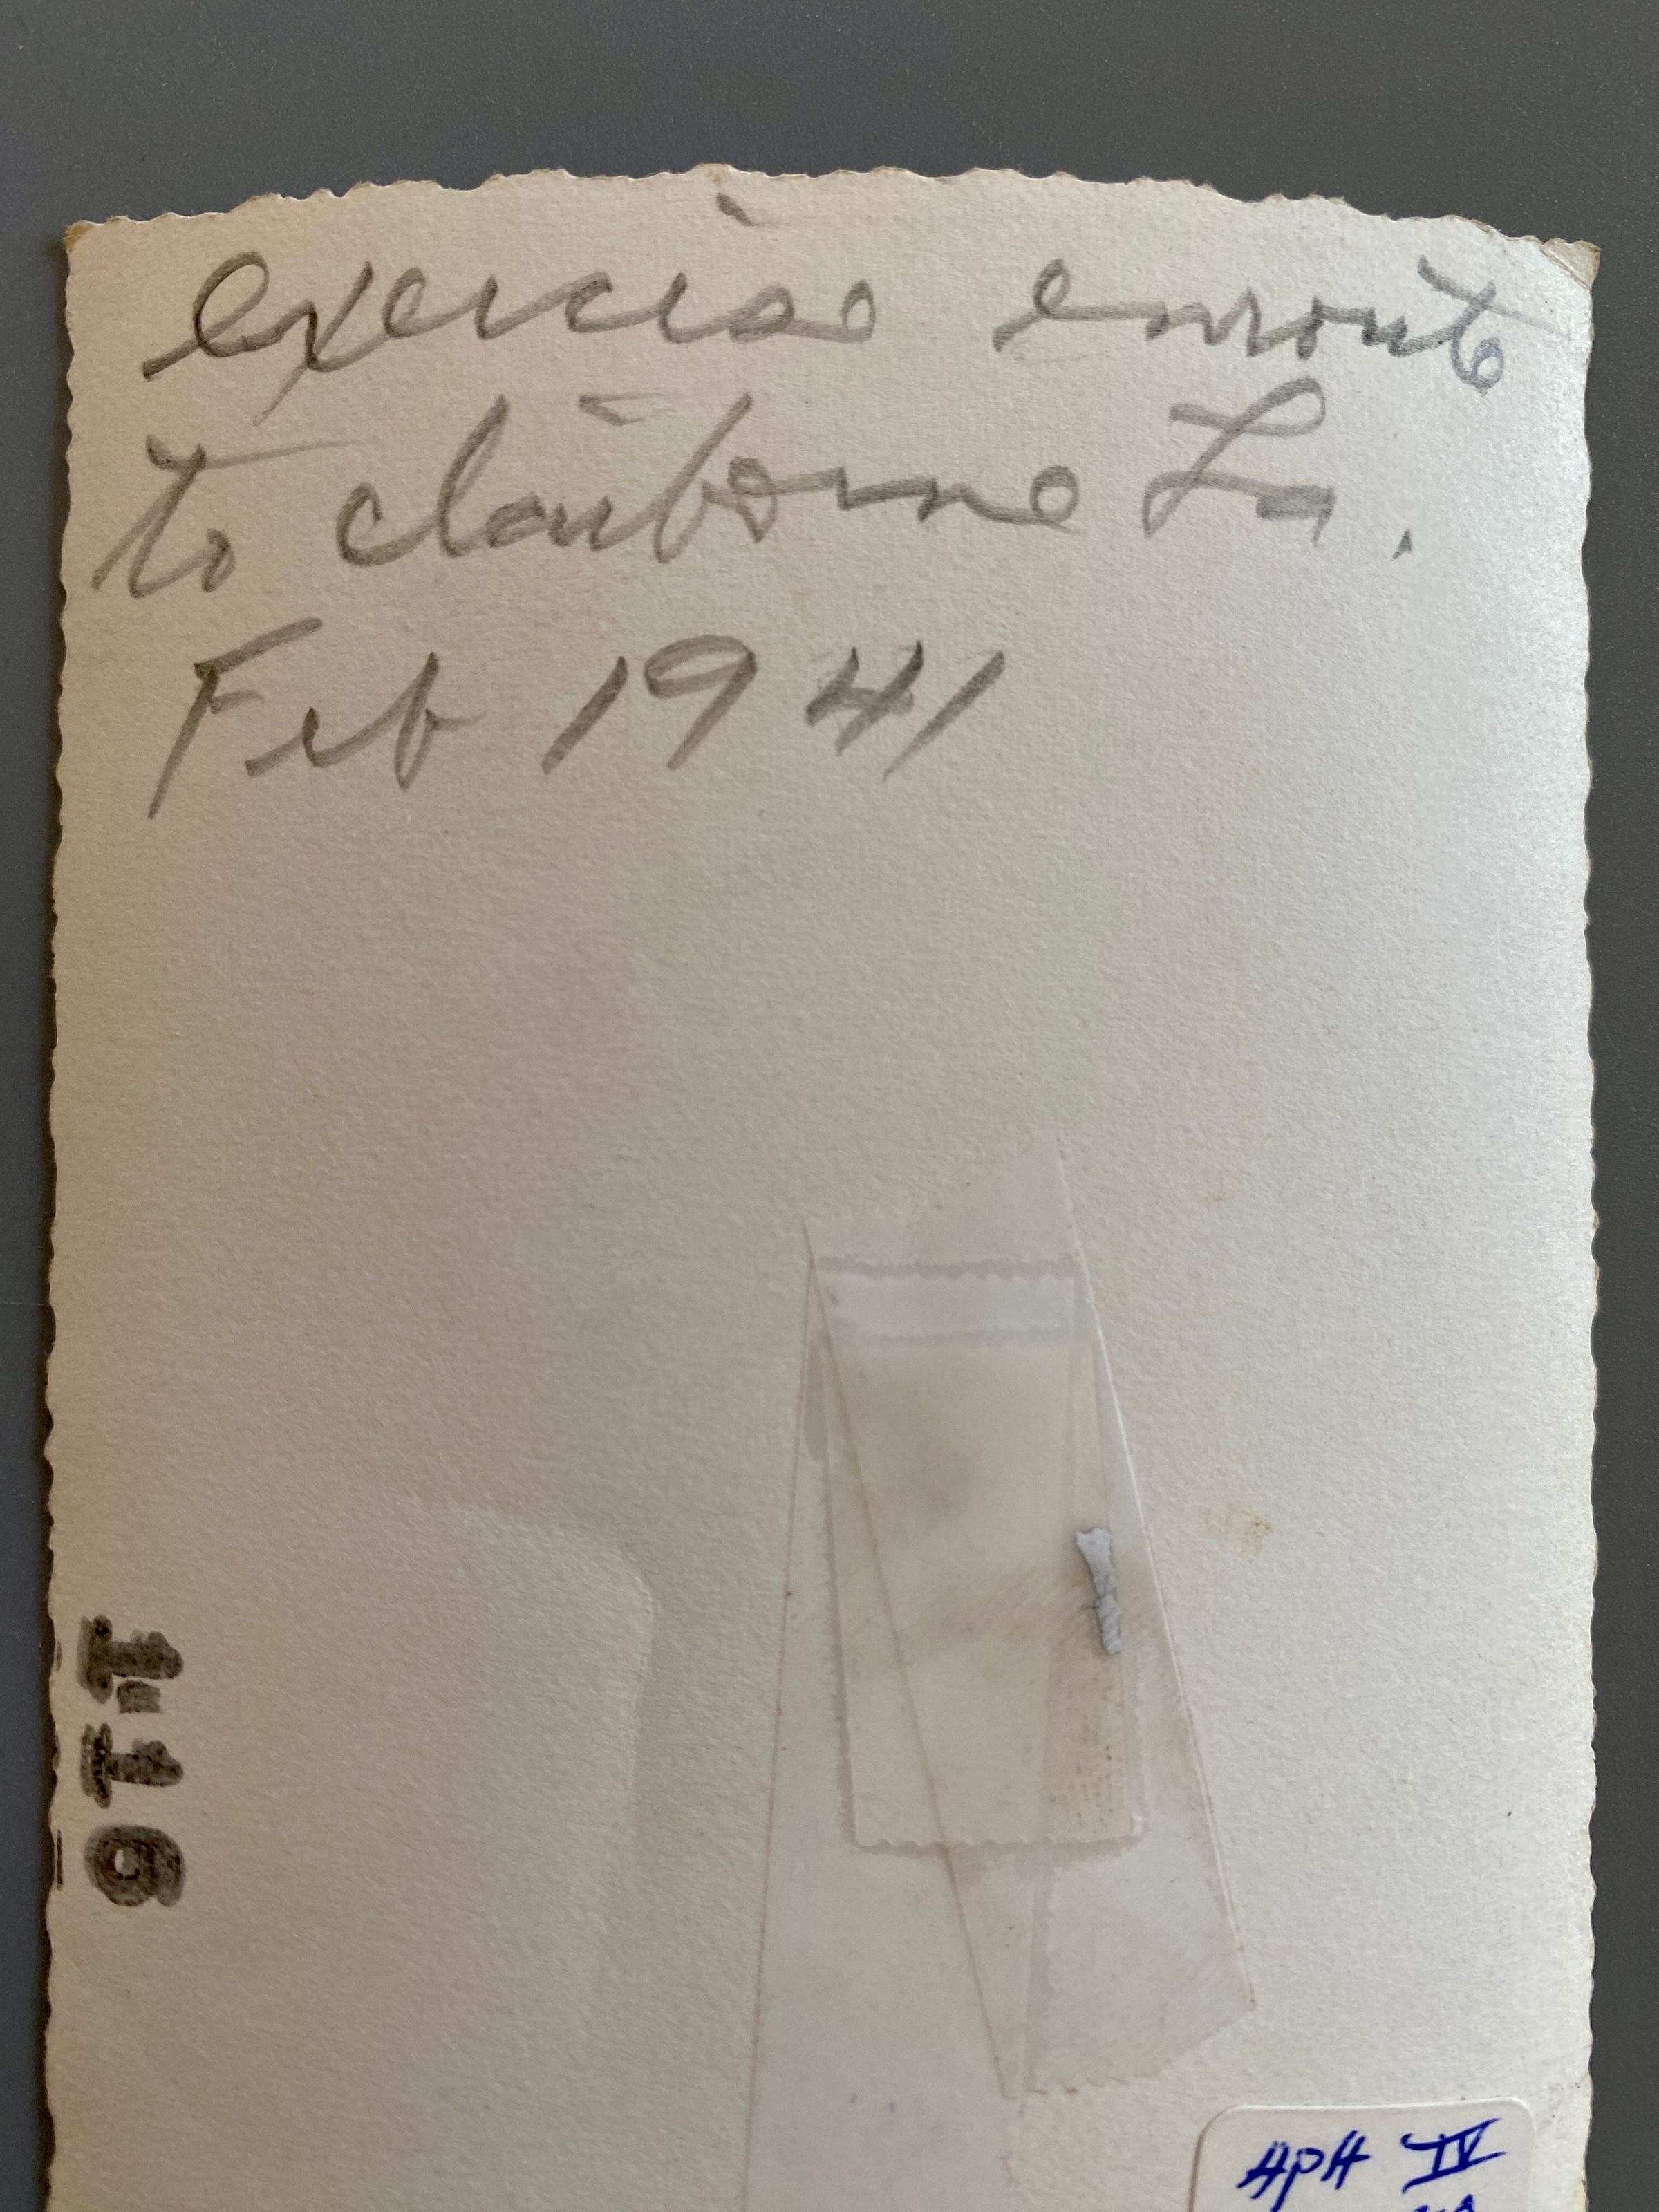 exercise enroute
to claiborne La.
Feb 1941
APH IV